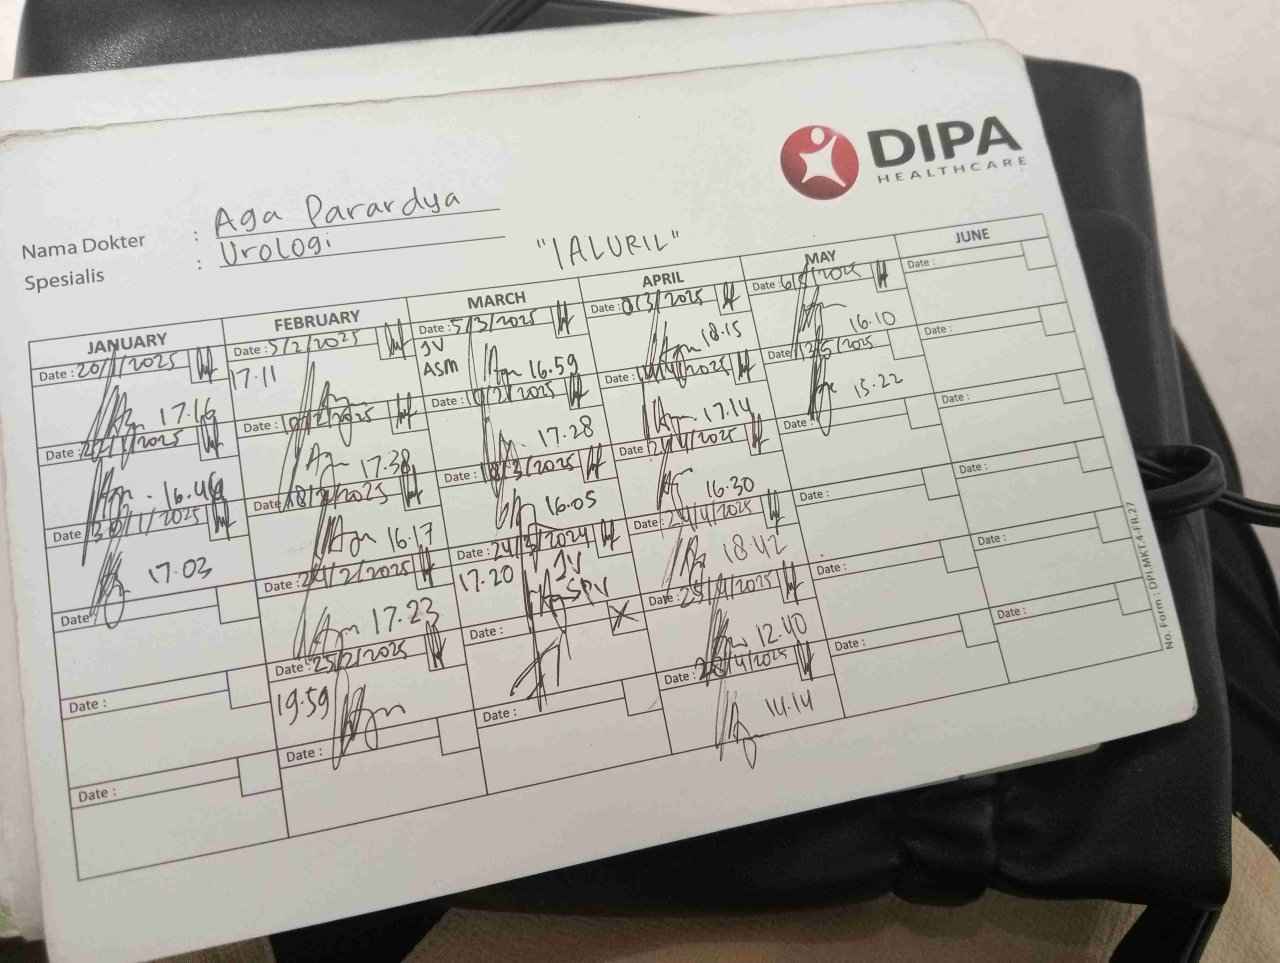 DIPA
HEALTHCARE
Nama Dokter : Aga Parardya
Spesialis : Urologi
"IALURIL"
JANUARY
Date : 20/1/2025
17.16
Date : 22/1/2025
16.49
Date : 30/1/2025
17.03
Date
Date :
Date :
FEBRUARY
Date : 5/2/2025
17.11
Date : 10/2/2025
17.38
Date : 18/2/2025
16.17
Date : 24/2/2025
17.23
Date : 25/2/2025
19.59
Date :
MARCH
Date : 5/3/2025
JV
ASM
16.59
Date : 10/2/2025
17.28
Date : 18/3/2025
16.05
Date : 24/3/2024
17.20
JV
SPV
Date :
Date :
APRIL
Date : 0/3/2025
18.15
Date : 14/4/2025
17.14
Date : 21/4/2025
16.30
Date : 24/4/2025
18.42
Date : 25/4/2025
12.40
Date : 28/4/2025
14.14
MAY
Date : 6/5/2025
16.10
Date : 12/5/2025
15.22
Date :
Date :
Date :
Date :
JUNE
Date :
Date :
Date :
Date :
Date :
Date :
No. Form : DPI.MKT.4-FR.27